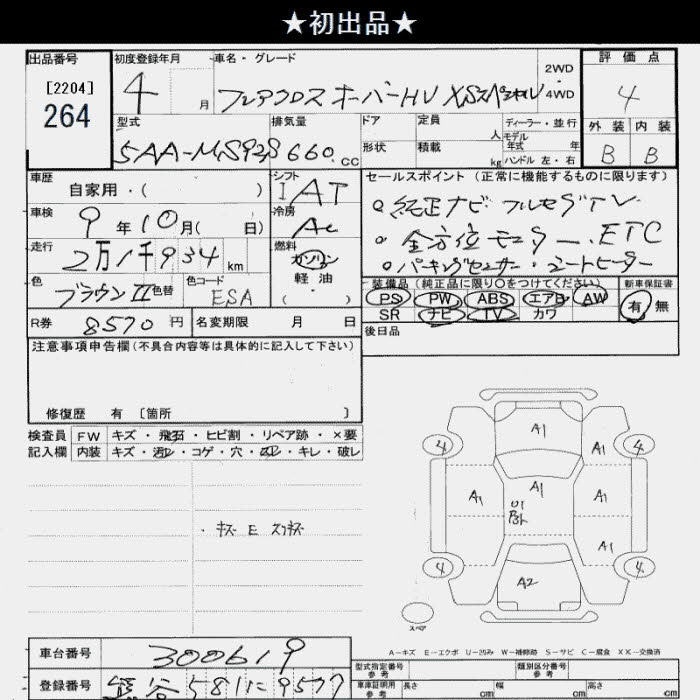 ★初出品★
出品番号
[2204]
264
初度登録年月
4 月
車名・グレード
フレアクロスオーバーHV XSスペシャル
2WD
4WD
評価点
4
外装 内装
B B
型式
5AA-MS92S
排気量
660.cc
ドア
形状
定員
人
積載
kg
ディーラー・並行
モデル
年式 年
ハンドル 左・右
車歴
自家用・( )
シフト
IAT
車検
9年10月( 日)
冷房
AC
走行
2万1千934 km
燃料
ガソリン
軽油
( )
色
ブラウンII 色替
色コード
ESA
R券
8570 円
名変期限 月 日
セールスポイント (正常に機能するものに限ります)
○純正ナビ フルセグTV
○全方位モニター ETC
○パーキングセンサー・シートヒーター
装備品(純正品に限り○をつけてください)
PS PW ABS エアB AW
SR ナビ TV カワ
新車保証書
有 無
後日品
注意事項申告欄(不具合内容等は具体的に記入して下さい)
修復歴 有 〔箇所 〕
検査員
記入欄
FW キズ・飛石・ヒビ割・リペア跡・×要
内装 キズ・汚レ・コゲ・穴・スレ・キレ・破レ
・キズ E スリキズ
A1
4
A1
4
A1
A1
U1
A1
A1
4
A2
4
スペア
A-キズ E-エクボ U-凹み W-補修跡 S-サビ C-腐食 XX-交換済
車台番号
300619
登録番号
熊谷 581 に 9577
型式指定番号
参考
類別区分番号
参考
車庫証明用
参考
長さ cm
幅 cm
高さ cm